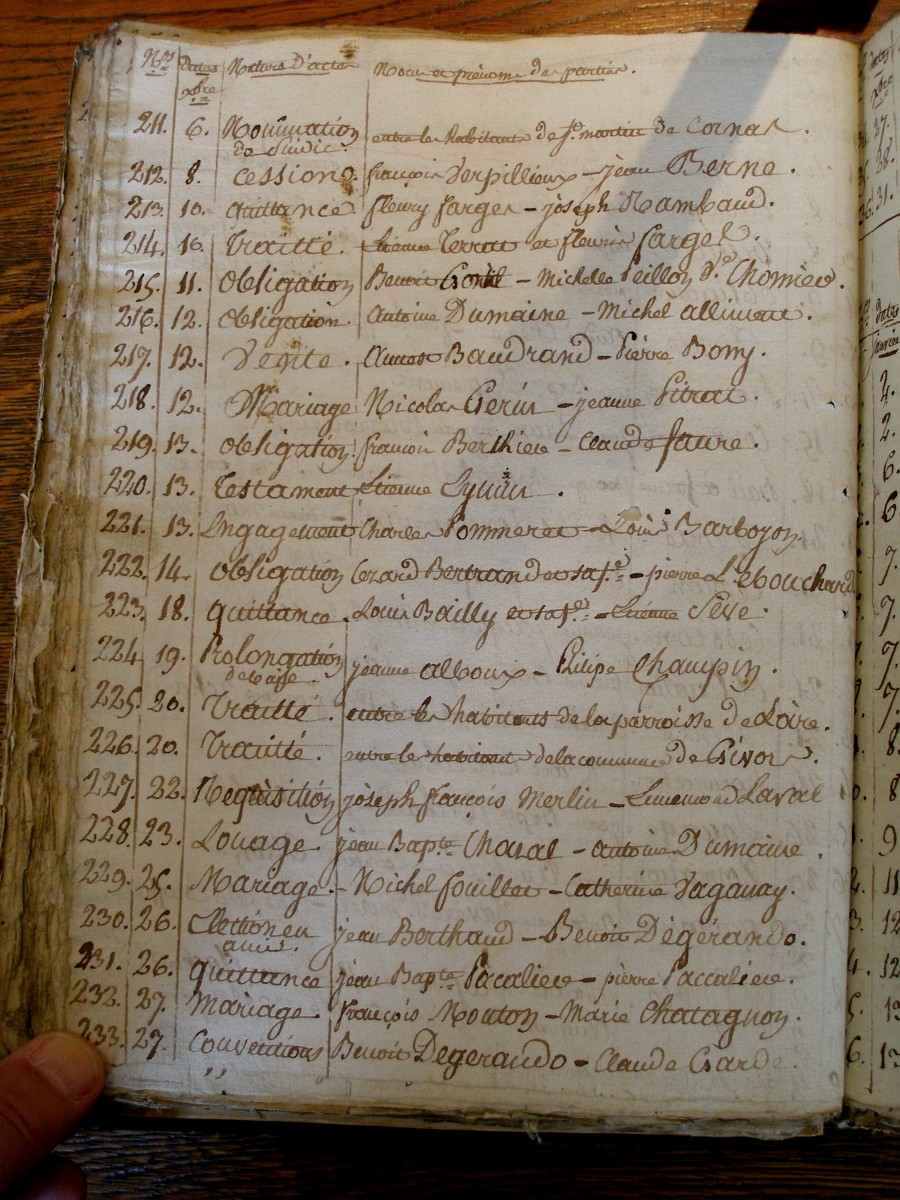 N.os Dates Nature d'actes Noms et prénoms des parties.
xbre
211. 6. Nomination entre les habitants de St. martin de Cornas.
de Sindic.
212. 8. Cession. françois Verpillieux - jean Berne.
213. 10. Quittance. fleury farges - joseph Rambaud.
214. 10. Traitté. Etienne Terrat et fleurie farges.
215. 11. Obligation Benoit - Michelle Peillon Ve. Chomier.
216. 12. Obligation. Antoine Dumaine - Michel
217. 12. Vente. Baudrand - Pierre Bony.
218. 12. Mariage Nicolas Gerin - jeanne Pitrat.
219. 13. Obligation. françois Berthier - Claude faure.
220. 13. Testament Etienne
221. 13. Engagement Charles Pommerat - Louis Barboyon.
222. 14. Obligation Bertrand et sa fe. - pierre Lebouchard
223. 18. Quittance. Louis Bailly et sa fe. - Etienne Seve.
224. 19. Prolongation jeanne alboux - Philipe Champin.
225. 20. Traitté. entre les habitants de la parroisse de Loire.
226. 20. Traitté. entre les habitant de la commune de Givors.
227. 22. Requisition joseph françois Merlin - Laval
228. 23. Louage. jean Bapte. Charat - antoine Dumaine.
229. 25. Mariage. - Michel fouillet - Catherine Vaganay.
230. 26. Election en jean Berthaud - Benoit Dégérando.
amis.
231. 26. Quittance jean Bapte. Pacalier - pierre Paccalier.
232. 27. Mariage. françois Mouton - Marie Chatagnon.
233. 27. Conventions Benoit Degerando - Claude Garde.